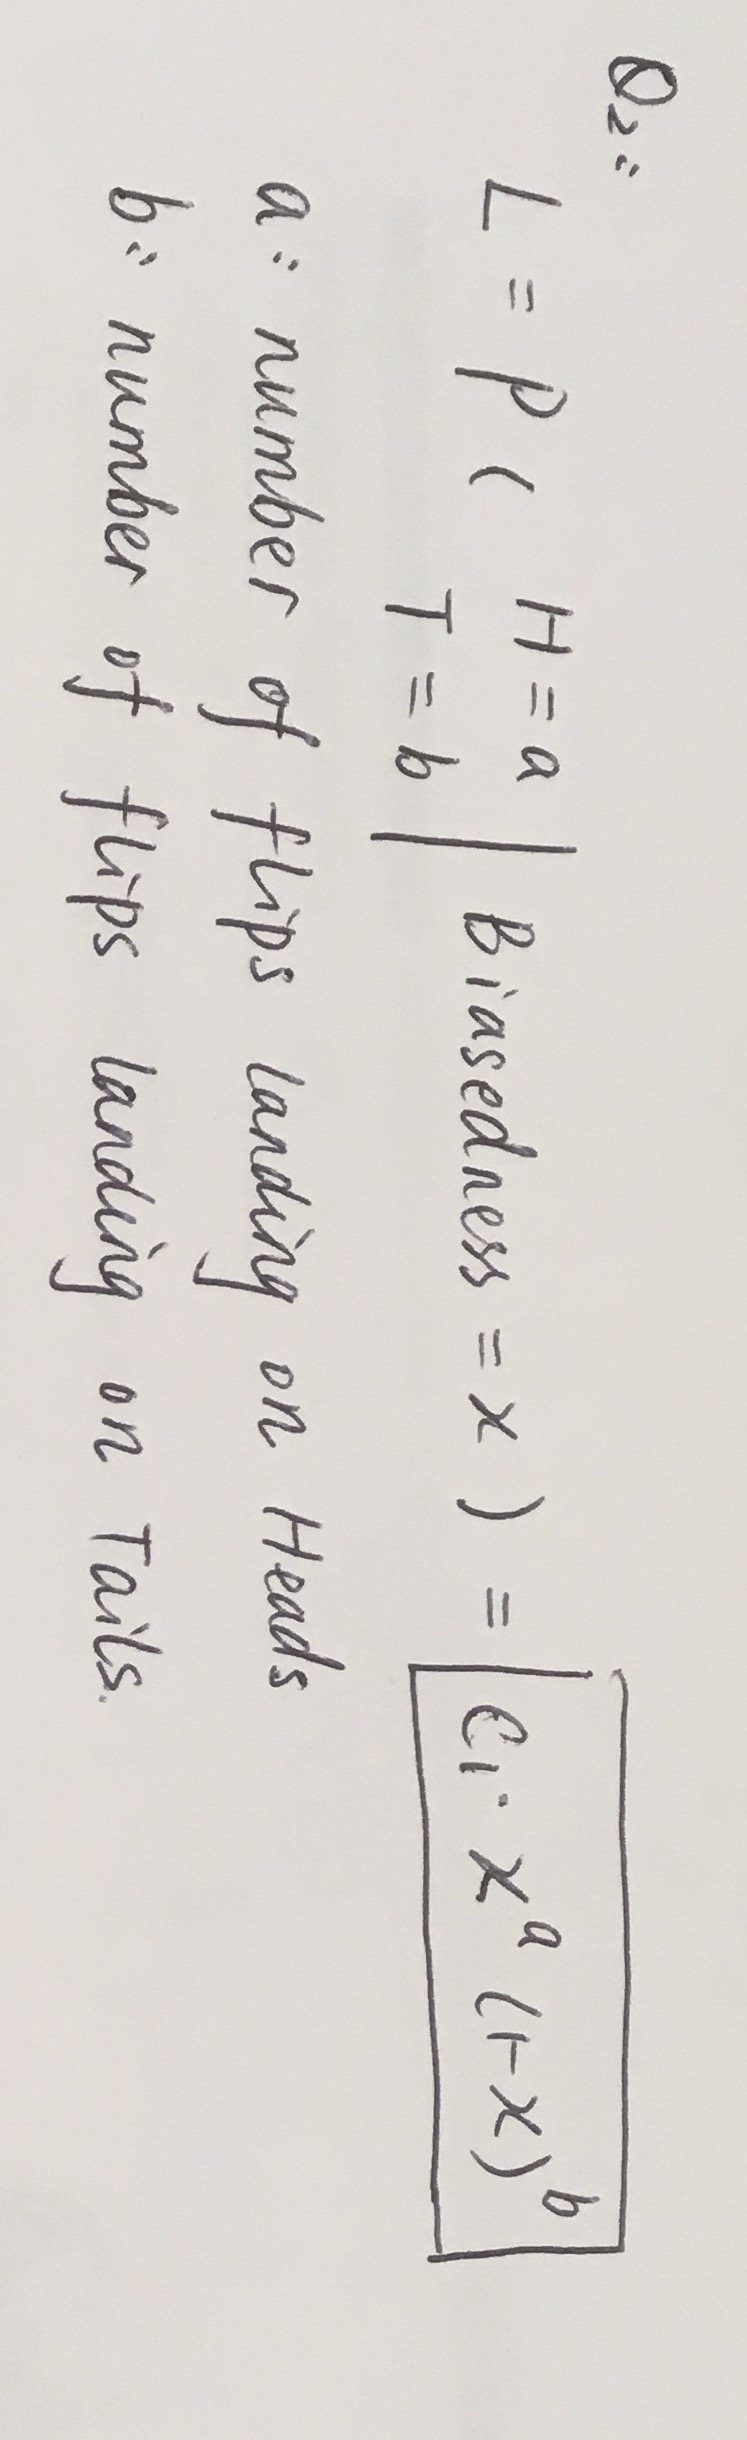 Q2:
L = P ( H = a T = b | Biasedness = x ) = C1 · x^a (1-x)^b
a: number of flips landing on Heads
b: number of flips landing on Tails.